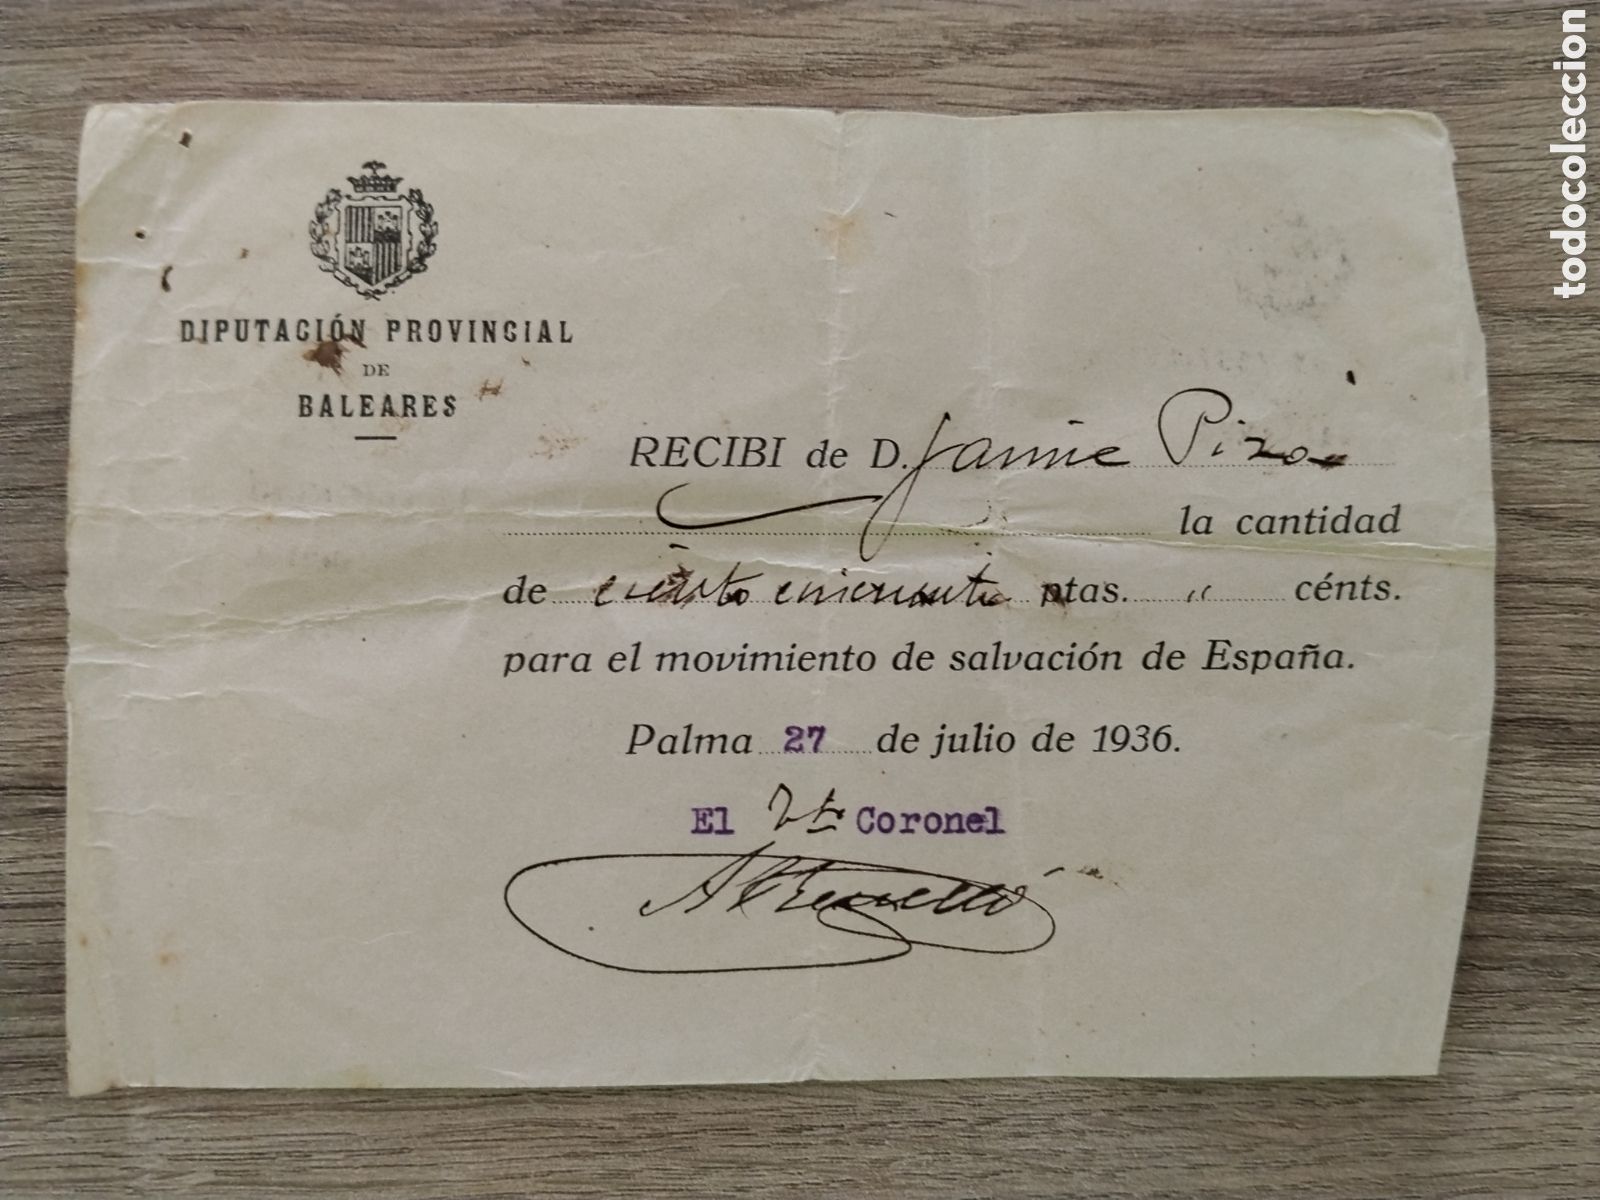 DIPUTACIÓN PROVINCIAL
DE
BALEARES
RECIBI de D. Jaime
la cantidad
de ciento cincuenta ptas. " cénts.
para el movimiento de salvación de España.
Palma 27 de julio de 1936.
El Coronel
todocoleccion